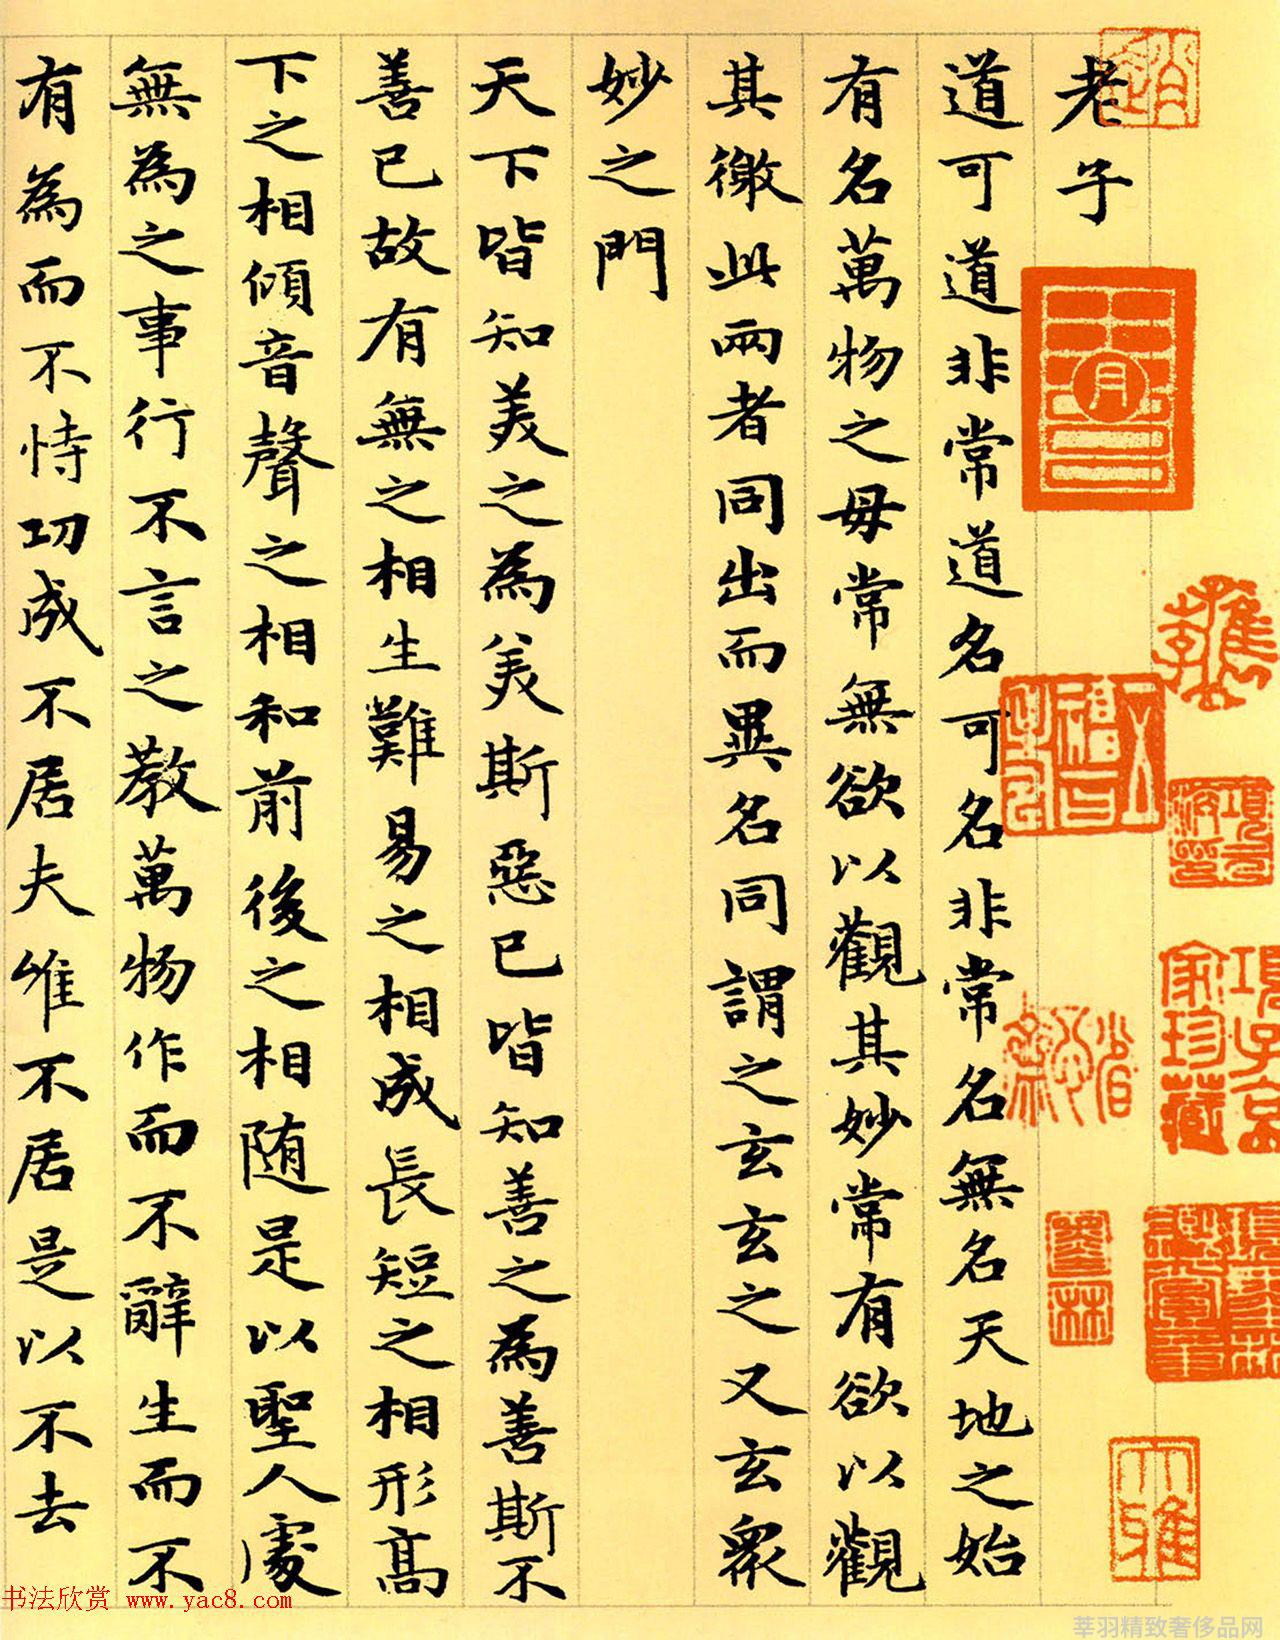 老子
道可道非常道名可名非常名無名天地之始
有名萬物之母常無欲以觀其妙常有欲以觀
其徼此兩者同出而異名同謂之玄玄之又玄衆
妙之門
天下皆知美之為美斯惡已皆知善之為善斯不
善已故有無之相生難易之相成長短之相形高
下之相傾音聲之相和前後之相随是以聖人處
無為之事行不言之教萬物作而不辭生而不
有為而不恃功成不居夫惟不居是以不去
項子京
家珍藏
大雅
书法欣赏 www.yac8.com
莘羽精致奢侈品网